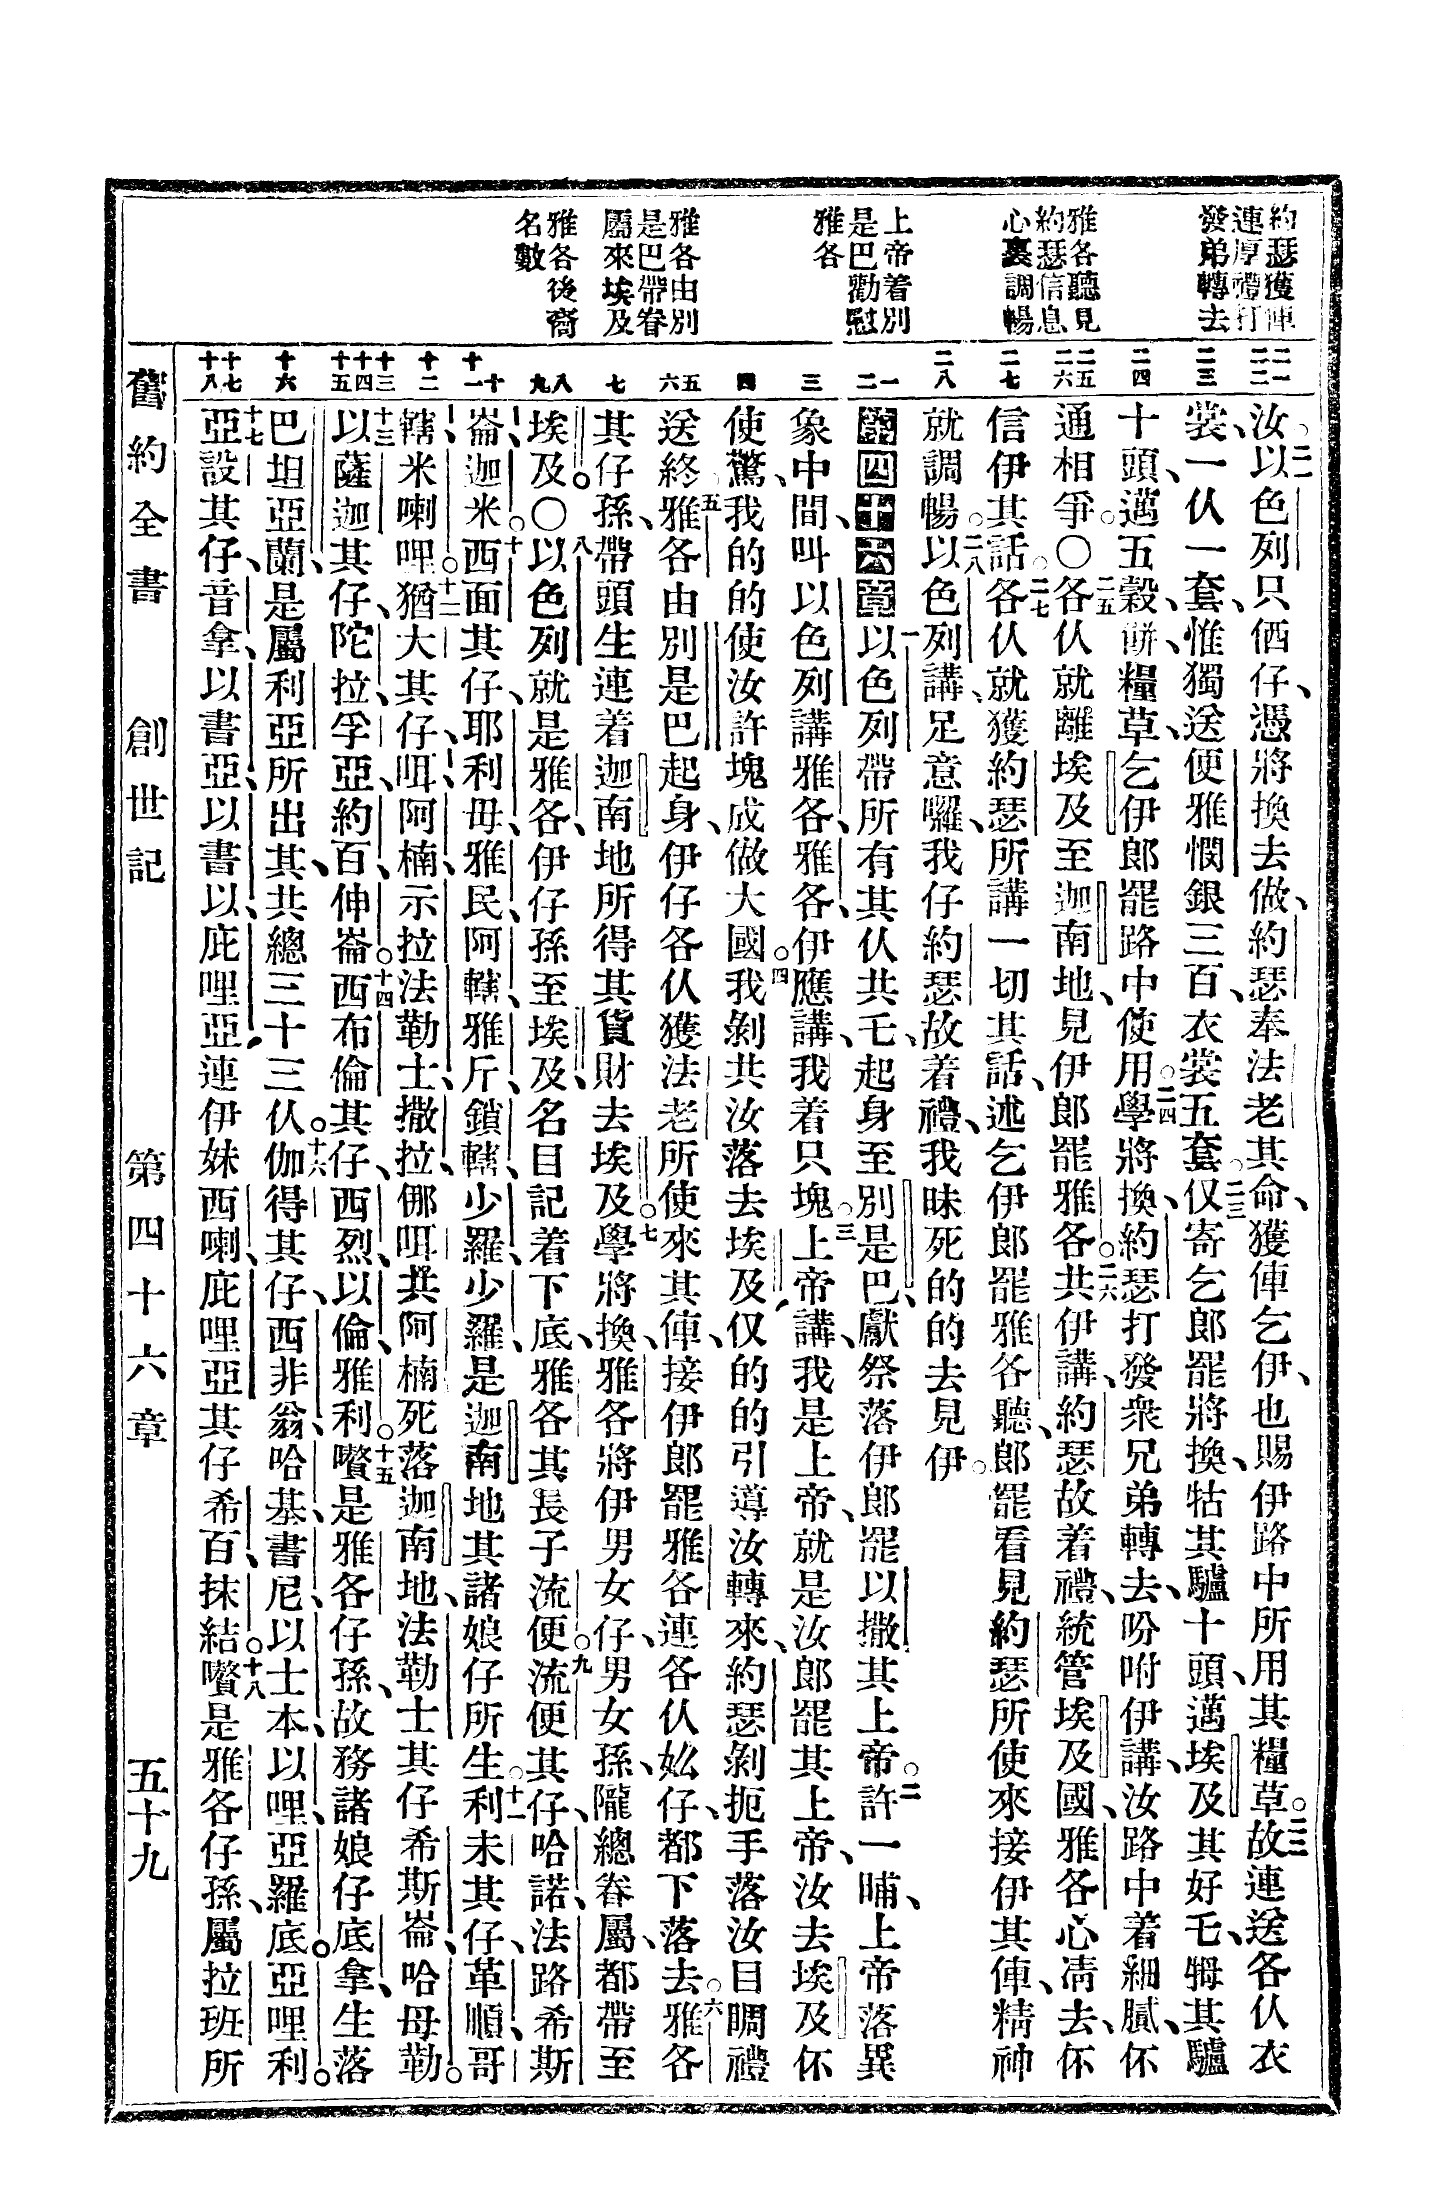 約瑟獲俥
連厚禮打
發弟轉去
雅各聽見
約瑟信息
心裏調暢
上帝着別
是巴勸慰
雅各
雅各由別
是巴帶眷
屬來埃及
雅各後裔
名數
二一
二二
二三
二四
二五
二六
二七
二八
一
二
三
四
五
六
七
八
九
十
十一
十二
十三
十四
十五
十六
十七
十八
汝○二一以色列只伵仔、憑將換去做、約瑟奉法老其命、獲俥乞伊、也賜伊路中所用其糧草○二二故連送各伙衣
裳、一伙一套、惟獨送便雅憫銀三百、衣裳五套○二三仅寄乞郎罷將換、牯其驢十頭、邁埃及其好乇、牳其驢
十頭、邁五穀、餅、糧草、乞伊郎罷路中使用○二四學將換、約瑟打發衆兄弟轉去、吩咐伊講、汝路中着細膩、伓
通相爭○〇二五各伙就離埃及至迦南地、見伊郎罷雅各○二六共伊講、約瑟故着禮、統管埃及國、雅各心凊去、伓
信伊其話○二七各伙就獲約瑟所講一切其話、述乞伊郎罷雅各聽、郎罷看見約瑟所使來接伊其俥、精神
就調暢○二八以色列講、足意囉、我仔約瑟故着禮、我昧死的的去見伊○
第四十六章一以色列帶所有其伙共乇、起身至別是巴、獻祭落伊郎罷以撒其上帝○二許一晡、上帝落異
象中間、叫以色列講、雅各、雅各、伊應講、我着只塊○三上帝講、我是上帝、就是汝郎罷其上帝、汝去埃及伓
使驚、我的的使汝許塊成做大國○四我剝共汝落去埃及、仅的的引導汝轉來、約瑟剝扼手落汝目睭禮
送終○五雅各由別是巴起身、伊仔各伙獲法老所使來其俥、接伊郎罷雅各、連各伙妐仔、都下落去○六雅各
其仔孫、帶頭生連着迦南地所得其貨財去埃及○七學將換、雅各將伊男女仔、男女孫、隴總眷屬、都帶至
埃及○〇八以色列就是雅各、伊仔孫至埃及、名目記着下底、雅各其長子流便○九流便其仔、哈諾、法路、希斯
崙、迦米○十西面其仔、耶利毋、雅民、阿轄、雅斤、鎖轄、少羅、少羅是迦南地其諸娘仔所生○十一利未其仔、革順、哥
轄、米喇哩○十二猶大其仔、咡、阿楠、示拉、法勒士、撒拉、㑚咡共阿楠死落迦南地、法勒士其仔希斯崙、哈母勒○
十三以薩迦其仔、陀拉、孚亞、約百、伸崙○十四西布倫其仔、西烈、以倫、雅利囋○十五是雅各仔孫、故務諸娘仔底拿、生落
巴坦亞蘭、是屬利亞所出其、共總三十三伙○十六伽得其仔、西非翁、哈基、書尼、以士本、以哩、亞羅底、亞哩利○
十七亞設其仔、音拿、以書亞、以書以、庇哩亞、連伊妹西喇、庇哩亞其仔希百、抹結囋○十八是雅各仔孫、屬拉班所
舊約全書　創世記　第四十六章　五十九